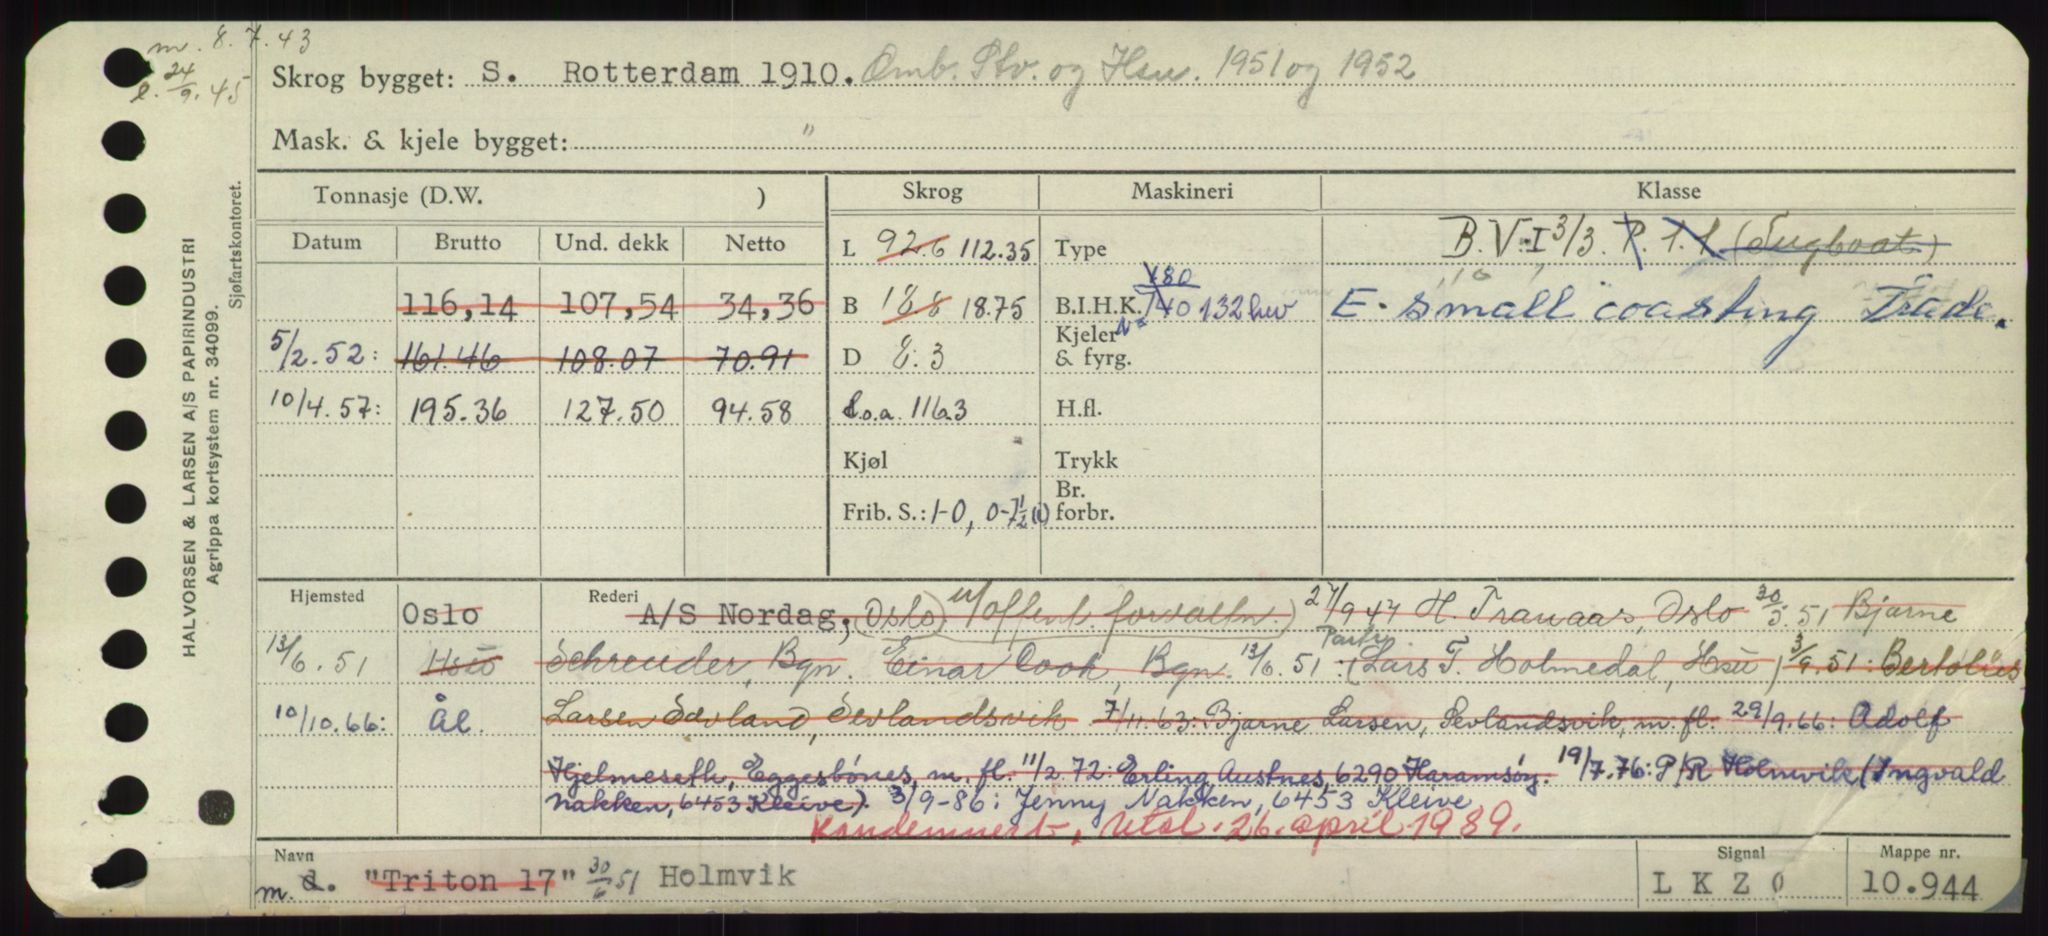 m. 8.7.43
24/9.45
Skrog bygget: S. Rotterdam 1910. Omb. Stv. og Hsu. 1951 og 1952
Mask. & kjele bygget: "
HALVORSEN & LARSEN A/S PAPIRINDUSTRI
Agrippa kortsystem nr. 34099.
Sjøfartskontoret.
Tonnasje (D.W. ) Skrog Maskineri Klasse
Datum Brutto Und. dekk Netto L 92.6 112.35 Type B.V. I 3/3. P. 1.1 (Tugboat)
116,14 107,54 34,36 B 18.8 18.75 B.I.H.K. 180 140 132 hev E. small coasting Trade.
5/2.52: 161.46 108.07 70.91 D 8.3 Kjeler & fyrg.
10/4.57: 195.36 127.50 94.58 l.o.a. 116.3 H.fl.
Kjøl Trykk
Frib. S.: 1-0, 0-7 1/2 (i) Br. forbr.
Hjemsted Oslo Rederi A/S Nordag, (Oslo) u/offent. forvaltn.) 27/9 47 H. Tranaas, Oslo 30/5.51 Bjarne
13/6.51 Hsu Schreuder, Bgn. Einar Cook, Bgn. 13/6.51: Partr. (Lars T. Holmedal, Hsu) 3/9.51: Bertelius
10/10.66: Ål. Larsen Sævland, Sevlandsvik 7/11.63: Bjarne Larsen, Sevlandsvik, m. fl. 29/9.66: Adolf
Hjelmeseth, Eggesbönes, m. fl. 11/2.72: Erling Austnes, 6290 Haramsöy. 19/7.76: P/R Holmvik (Ingvald
Nakken, 6453 Kleive). 3/9-86: Jenny Nakken, 6453 Kleive
Kondemnert, Utol. 26. april 1989.
Navn Signal Mappe nr.
m. d. "Triton 17" 30/6 51 Holmvik L K Z O 10.944